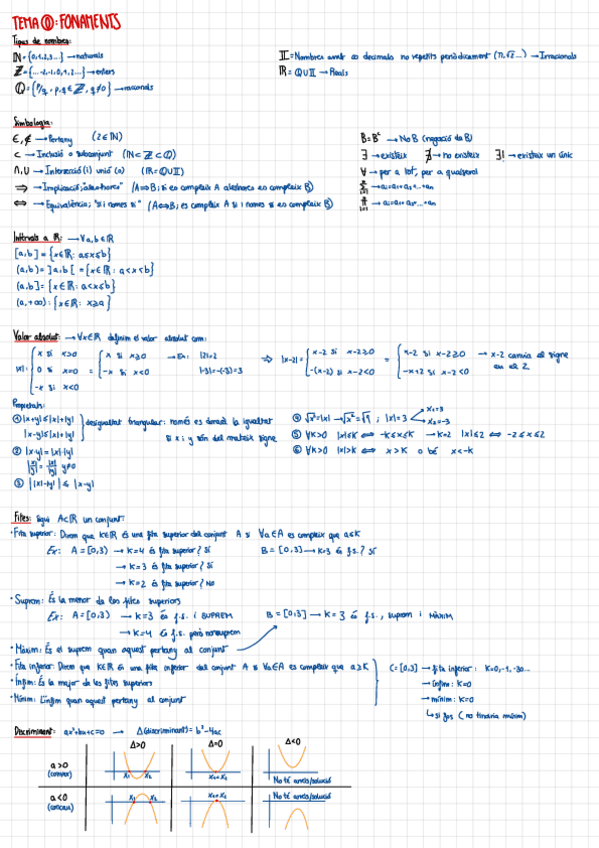 TEMA 0: FONAMENTS
Tipus de nombres:
ℕ = {0,1,2,3...} → naturals
ℤ = {...-2,-1,0,1,2...} → enters
ℚ = {p/q : p,q ∈ ℤ, q≠0} → racionals
𝕀 = Nombres amb ∞ decimals no repetits periòdicament (π, √2...) → Irracionals
ℝ = ℚ∪𝕀 → Reals
Simbologia:
∈, ∉ → Pertany (2∈ℕ)
⊂ → Inclusió o subconjunt (ℕ⊂ℤ⊂ℚ)
∩, ∪ → Intersecció (i) unió (o) (ℝ=ℚ∪𝕀)
⇒ → Implicació; "aleshores" (A⇒B; si es compleix A aleshores es compleix B)
⇔ → Equivalència; "si i només si" (A⇔B; es compleix A si i només si es compleix B)
→ No B (negació de B)
∃ → existeix ∄ → no existeix ∃! → existeix un únic
∀ → per a tot, per a qualsevol
Intervals a ℝ: → ∀a,b∈ℝ
[a,b] = {x∈ℝ: a≤x≤b}
(a,b) = ]a,b[ = {x∈ℝ: a<x<b}
(a,b] = {x∈ℝ: a<x≤b}
(a,+∞): {x∈ℝ: x≥a}
Valor absolut: → ∀x∈ℝ definim el valor absolut com:
|x| = { x si x>0 ; 0 si x=0 ; -x si x<0 = { x si x≥0 ; -x si x<0 → Ex: |2|=2 ; |-3|=-(-3)=3
⇒ |x-2| = { x-2 si x-2≥0 ; -(x-2) si x-2<0 = { x-2 si x-2≥0 ; -x+2 si x-2<0 → x-2 canvia el signe en el 2
Propietats:
① |x+y|≤|x|+|y|
|x-y|≤|x|+|y|
desigualtat triangular: només es donarà la igualtat si x i y són del mateix signe
② |x·y|=|x|·|y|
|x/y| = |x|/|y| y≠0
③ ||x|-|y|| ≤ |x-y|
④ √x²=|x| → √x²=√9 ; |x|=3 x₁=3 x₂=-3
⑤ ∀K>0 |x|≤K ⇔ -K≤x≤K → K=2 |x|≤2 ⇔ -2≤x≤2
⑥ ∀K>0 |x|>K ⇔ x>K o bé x<-K
Fites: sigui A⊂ℝ un conjunt:
· Fita superior: Direm que K∈ℝ és una fita superior del conjunt A si ∀a∈A es compleix que a≤K
Ex: A=[0,3) → K=4 és fita superior? Sí
→ K=3 és fita superior? Sí
→ K=2 és fita superior? No
B=[0,3] → K=3 és f.s.? Sí
· Suprem: És la menor de les fites superiors
Ex: A=[0,3) → K=3 és f.s. i SUPREM
→ K=4 és f.s. però no suprem
B=[0,3] → K=3 és f.s., suprem i MÀXIM
· Màxim: És el suprem quan aquest pertany al conjunt
· Fita inferior: Direm que K∈ℝ és una fita inferior del conjunt A si ∀a∈A es compleix que a≥K
· Ínfim: És la major de les fites inferiors
· Mínim: L'ínfim quan aquest pertany al conjunt
C=[0,3] → fita inferior: K=0,-1,-30...
→ ínfim: K=0
→ mínim: K=0
↳ si fos ( no tindria mínim)
Discriminant: ax²+bx+c=0 → Δ(discriminant)= b²-4ac
Δ>0 Δ=0 Δ<0
a>0 (convex) x₁ x₂ x₁=x₂ No té arrels/solució
a<0 (còncava) x₁ x₂ x₁=x₂ No té arrels/solució